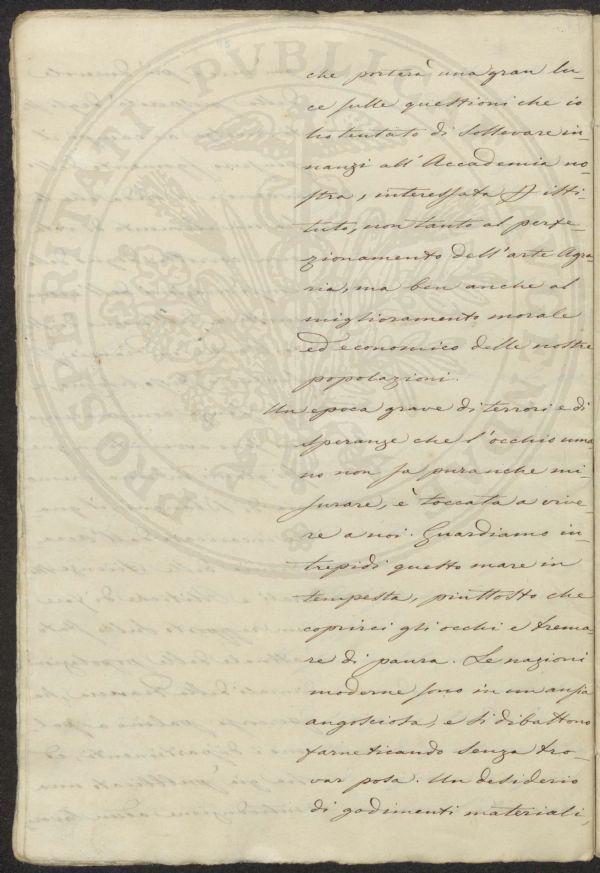 PROSPERITATI PVBLICAE
che porterà una gran lu-
ce sulle questioni che io
ho tentato di sollevare in-
nanzi all'Accademia no-
stra, interessata p istì-
tuto, non tanto al perfe-
zionamento dell'arte Agra-
ria, ma ben anche al
miglioramento morale
ed economico delle nostre
popolazioni.
Un epoca grave di terrori e di
speranze che l'occhio uma-
no non sa pur anche mi-
surare, è toccata a vive-
re a noi. Guardiamo in-
trepidi questo mare in
tempesta, piuttosto che
coprirci gli occhi e trema-
re di paura. Le nazioni
moderne sono in un ansia
angosciosa, e si dibattono
farneticando senza tro-
var posa. Un desiderio
di godimenti materiali,